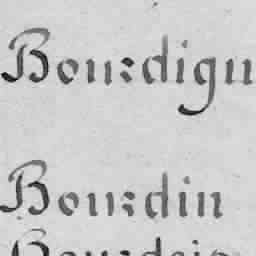 Bourdigu
Bourdin